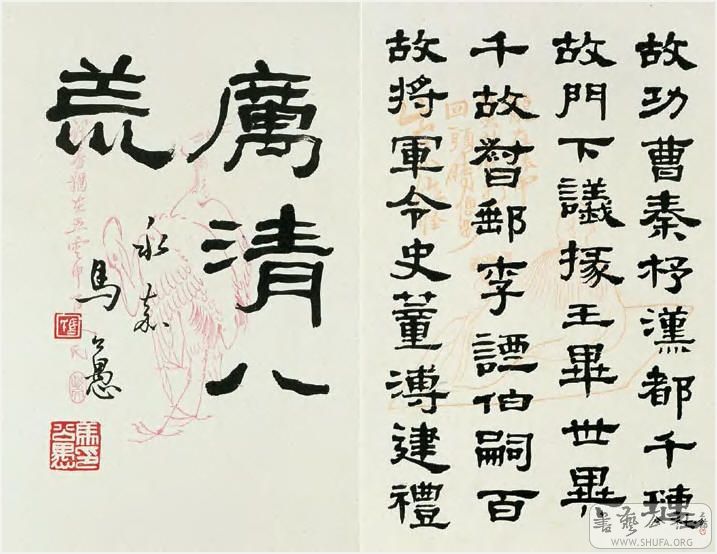 故功曹秦杼漢都千
故門下議掾王畢世異
千故督郵李諲伯嗣百
故將軍令史董溥建禮
厲清八
荒
永嘉
馬公愚
馬公愚印
書藝公社
WWW.SHUFA.ORG